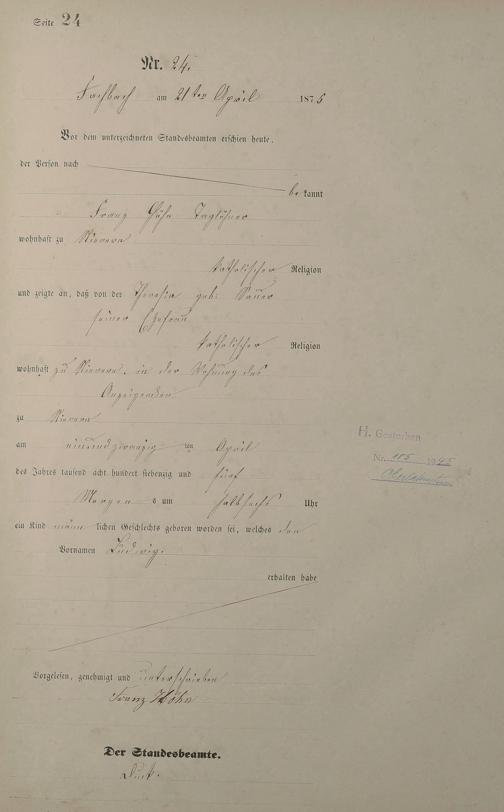 Seite 24
Nr. 24.
Fachbach am 21ten April 1875
Vor dem unterzeichneten Standesbeamten erschien heute,
der Person nach
be kannt
Franz Höhn Taglöhner
wohnhaft zu Nievern
katholischer Religion
und zeigte an, daß von der Theresia geb. Sauer
seiner Ehefrau
katholischer Religion
wohnhaft zu Nievern, in der Wohnung des
Anzeigenden
zu Nievern
am einundzwanzig ten April
des Jahres tausend acht hundert siebenzig und fünf
Morgens um halbsechs Uhr
ein Kind männ lichen Geschlechts geboren worden sei, welches den
Vornamen Ludwig.
erhalten habe
Vorgelesen, genehmigt und unterschrieben
Franz Höhn
Der Standesbeamte.
H. Gestorben
Nr. 115 1945